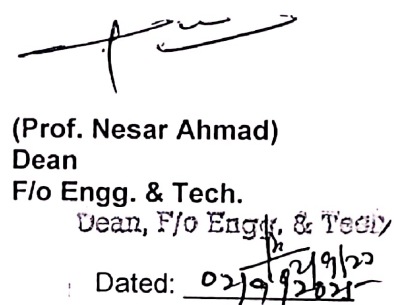 (Prof. Nesar Ahmad)
Dean
F/o Engg. & Tech.
Dean, F/o Engg. & Tech
Dated: 02/9/2021